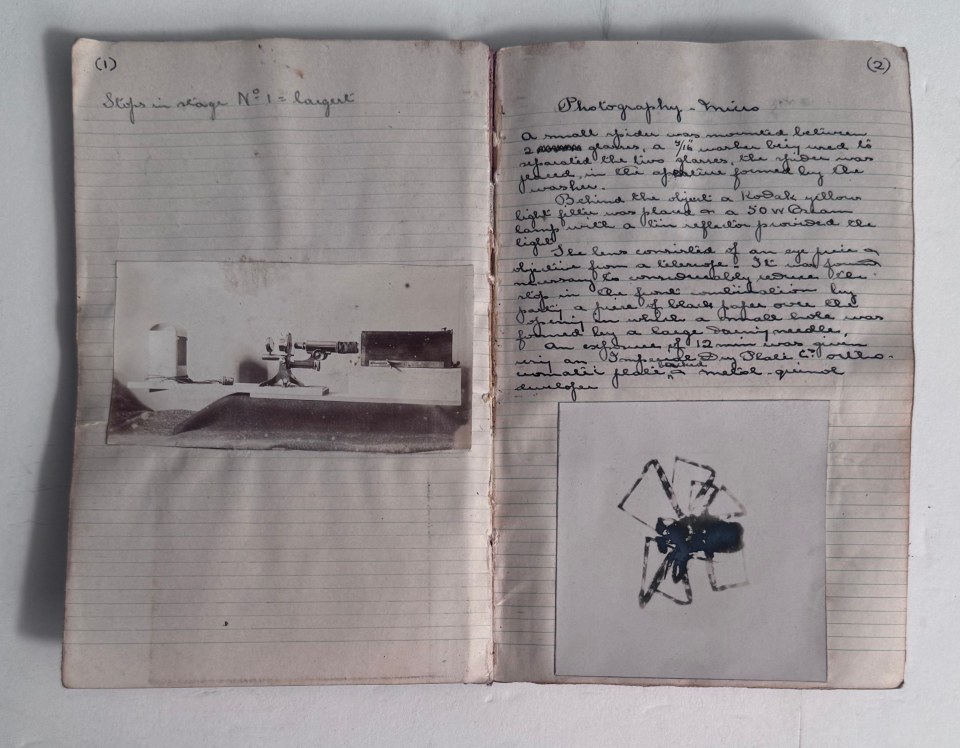 (1)
Stops in stage No 1 = largest
(2)
Photography - Micro
A small spider was mounted between
2 glasses, a /16" washer being used to
separated the two glasses, the spider was
placed, in the aperture formed by the
washer.
Behind the object a Kodak yellow
light filter was placed a 50 W
lamp with a tin reflector provided the
light.
The lens consisted of an eye piece &
objective from a telescope - It was found
necessary to considerably reduce the
stop in the front combination by
a piece of black paper over the
opening in which a small hole was
formed by a large darning needle.
An exposure of 12 min was given
using an Imperial Dry Plate Co ortho-
plate, & metol-quinol
developer